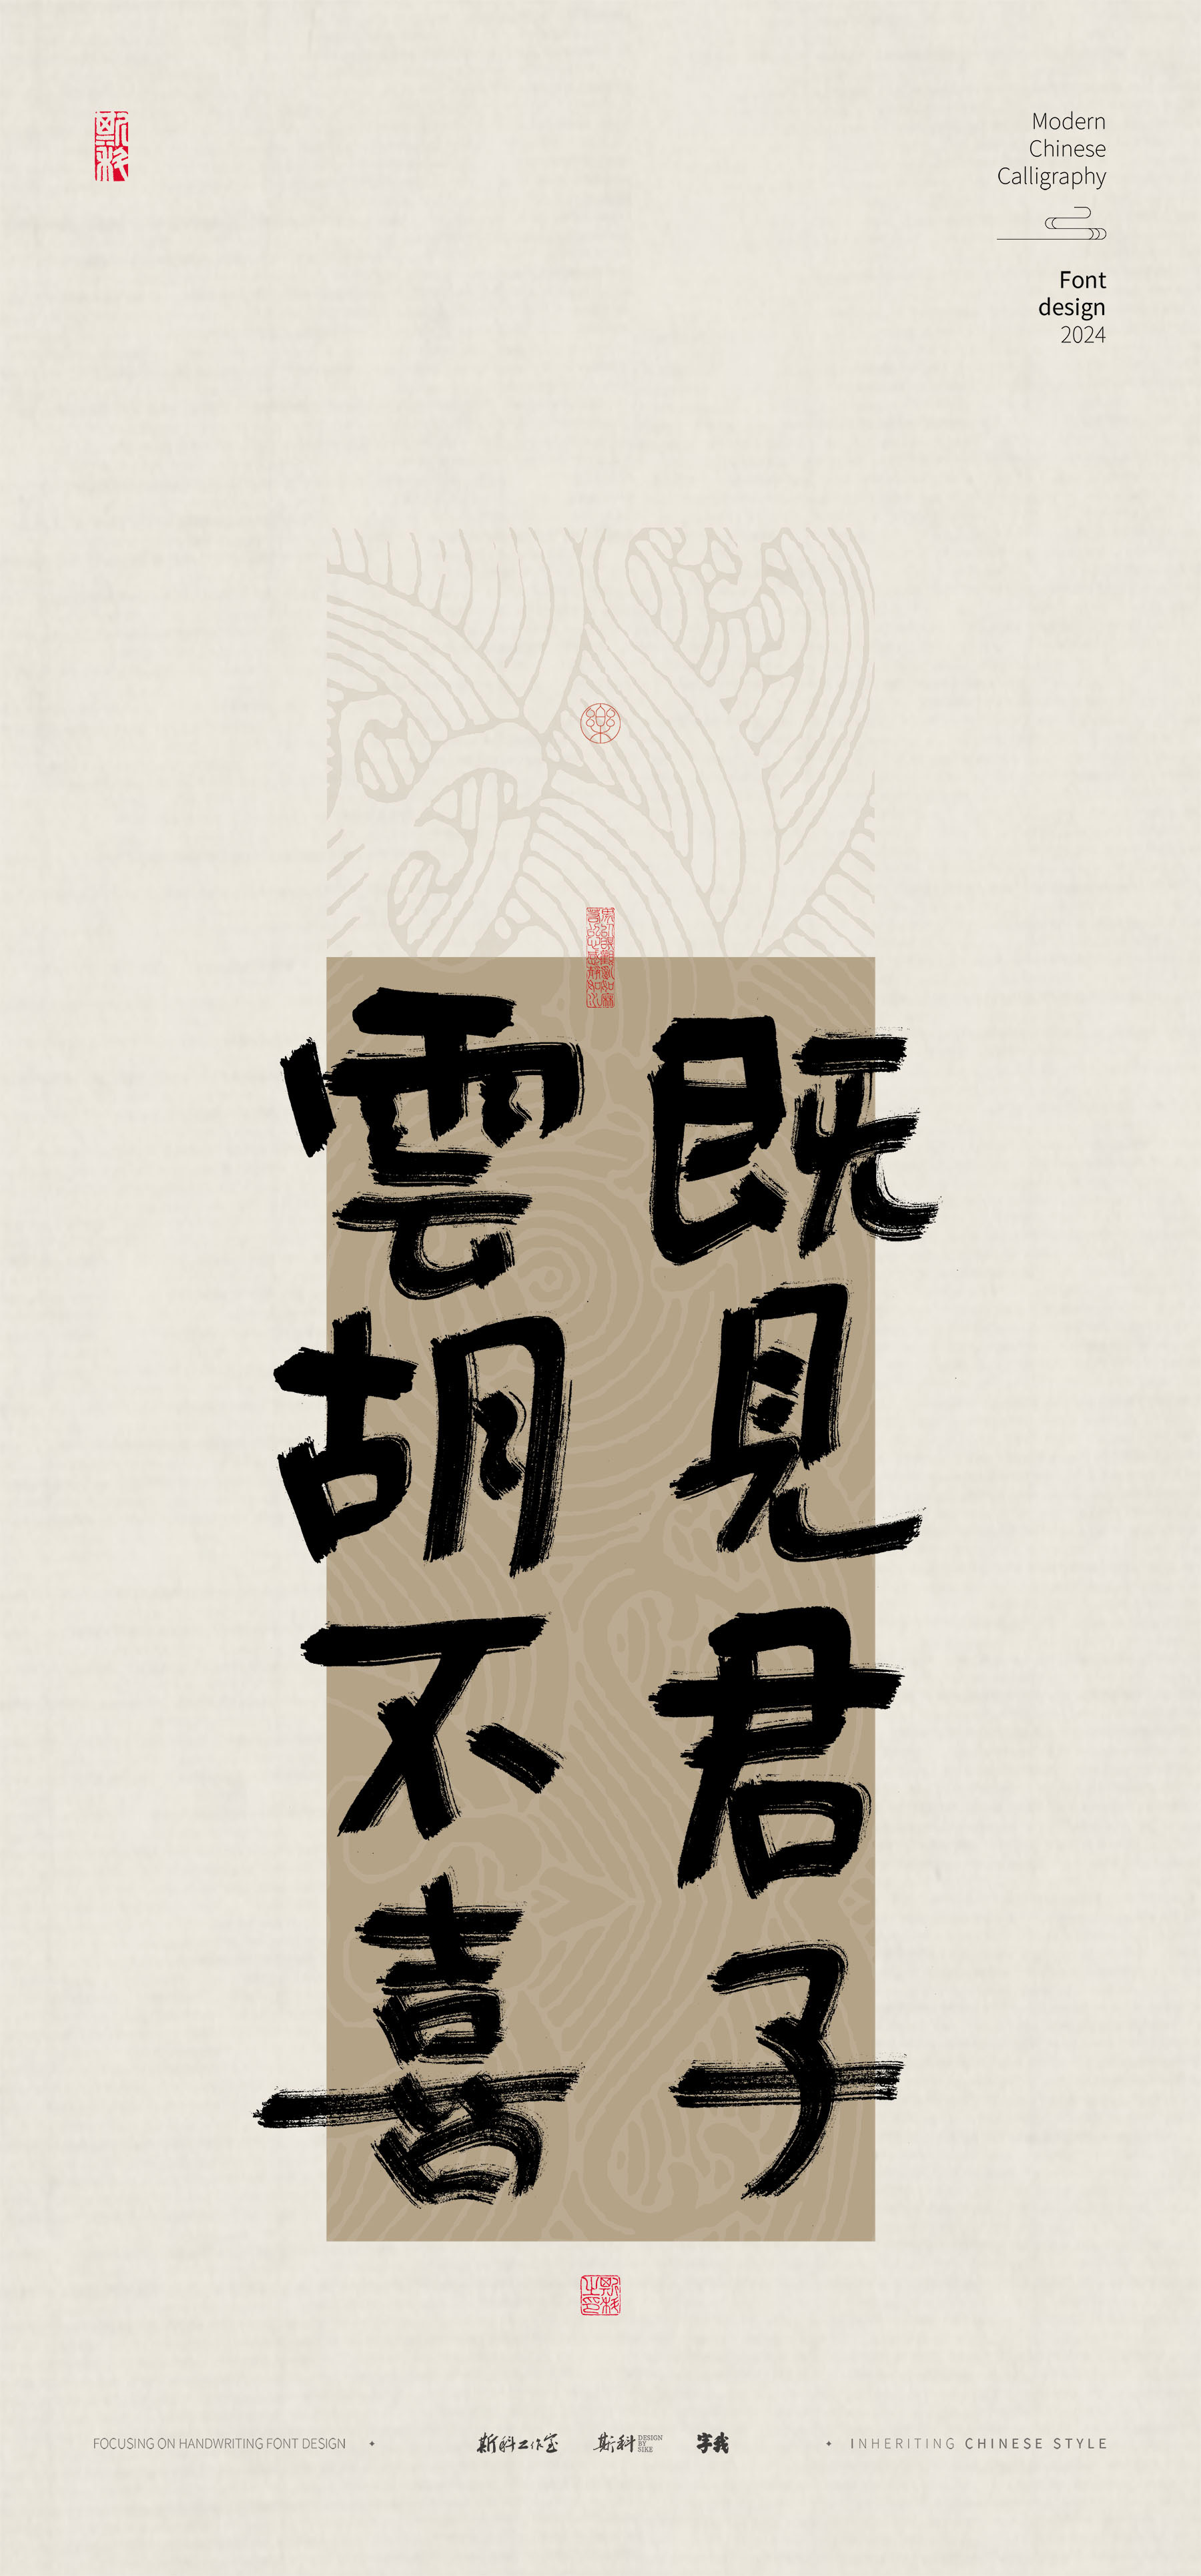 斯科
Modern
Chinese
Calligraphy
Font
design
2024
既見君子
雲胡不喜
斯科之印
FOCUSING ON HANDWRITING FONT DESIGN
斯科工作室
斯科
DESIGN
BY
SIKE
字我
INHERITING CHINESE STYLE